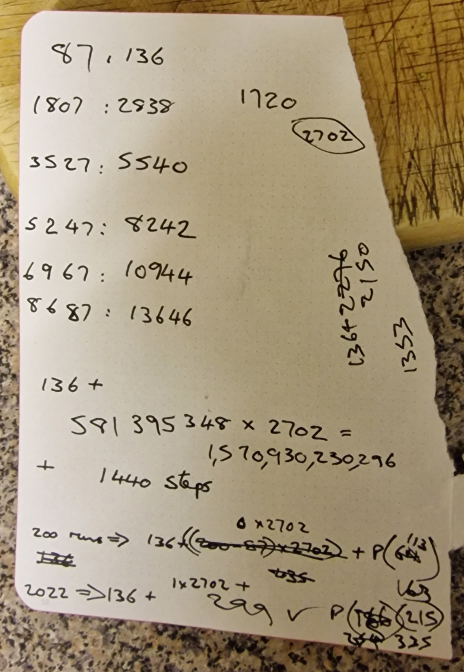 87, 136
1807 : 2838
1720
2702
3527: 5540
5247: 8242
6967: 10944
8687: 13646
136+2276
2150
1353
136 +
581 395 348 × 2702 =
1,570,930,230,296
+ 1440 steps
0 × 2702
200 runs => 136+((200-87)×2702) + P(113)
136
635
163
2022 => 136 + 1×2702 +
299 ✓ P(186)(215)
325